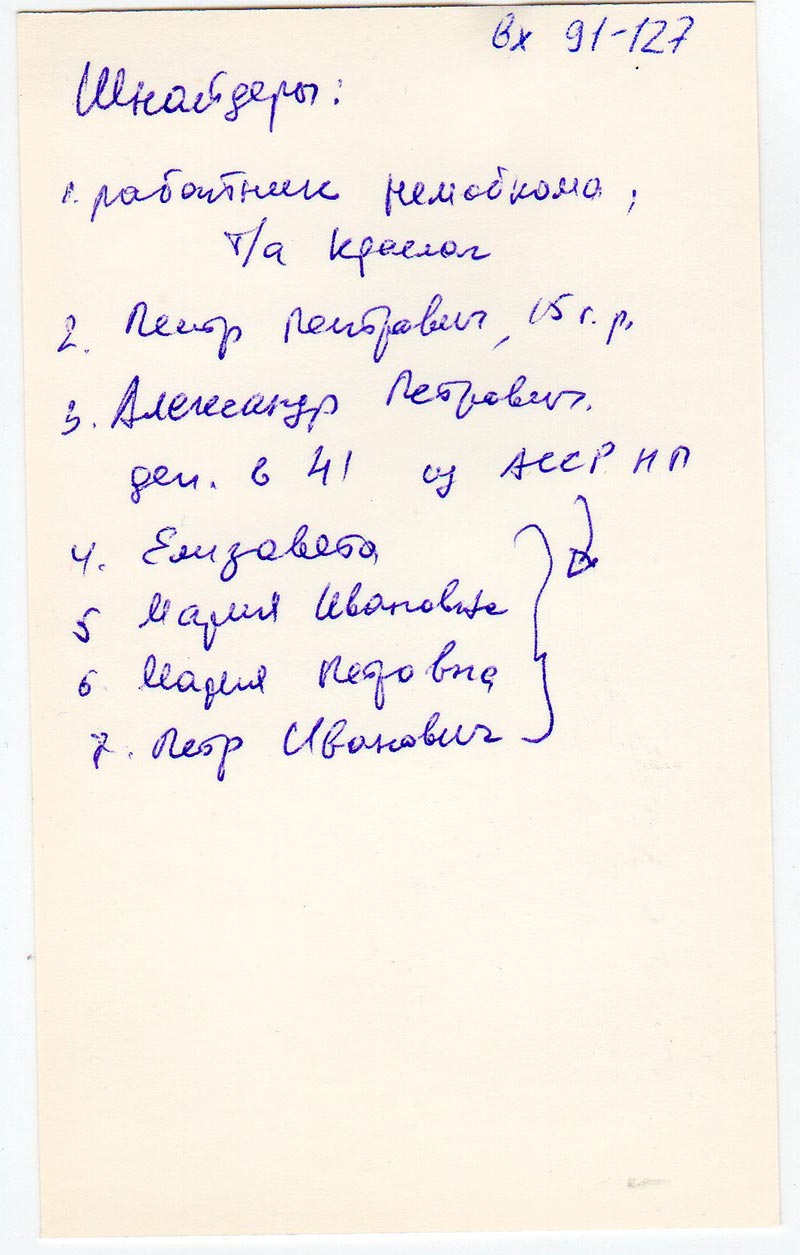 Вх 91-127
Шнайдеры:
1. работник немобкома;
т/а Краслаг
2. Петр Петрович, 15 г.р.
3. Александр Петрович.
деп. в 41 из АССР НП
4. Елизавета
5 Мария Ивановна
6. Мария Петровна
7. Петр Иванович